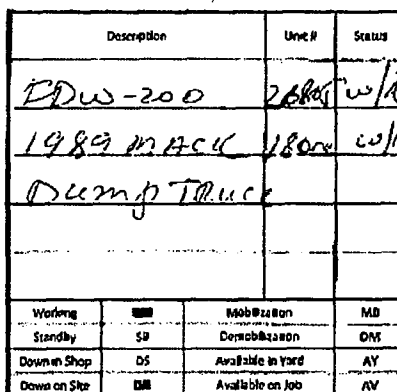 Description Unit # Status
EDW-200
1989 MACK
Dump Truck
Working Mobilization MB
Standby SB Demobilization DM
Down in Shop DS Available in Yard AY
Down on Site Available on Job AV